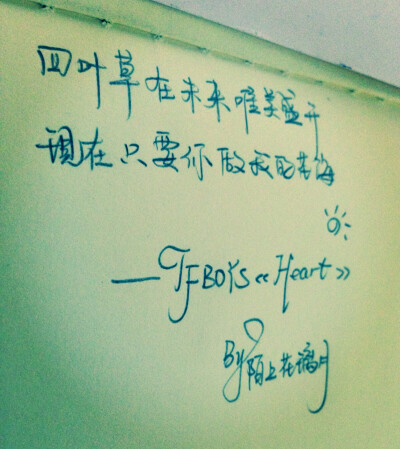 四叶草在未来唯美盛开
现在只要你做我的花海
—TFBOYS《Heart》
By陌上花漓月